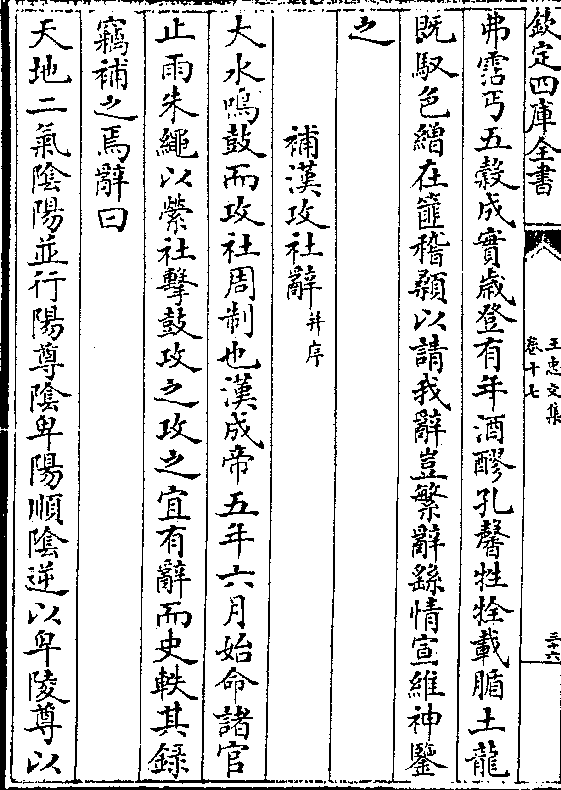 欽定四庫全書
王忠文集
卷十七
三十六
弗霑丐五穀成實歲登有年酒醪孔馨牲牷載腯土龍
既馭色繒在篚稽顙以請我辭豈繁辭繇情宣維神鑒
之
補漢攻社辭并序
大水鳴鼓而攻社周制也漢成帝五年六月始命諸官
止雨朱繩以縈社擊鼓攻之攻之宜有辭而史軼其録
竊補之焉辭曰
天地二氣陰陽並行陽尊陰卑陽順陰逆以卑陵尊以